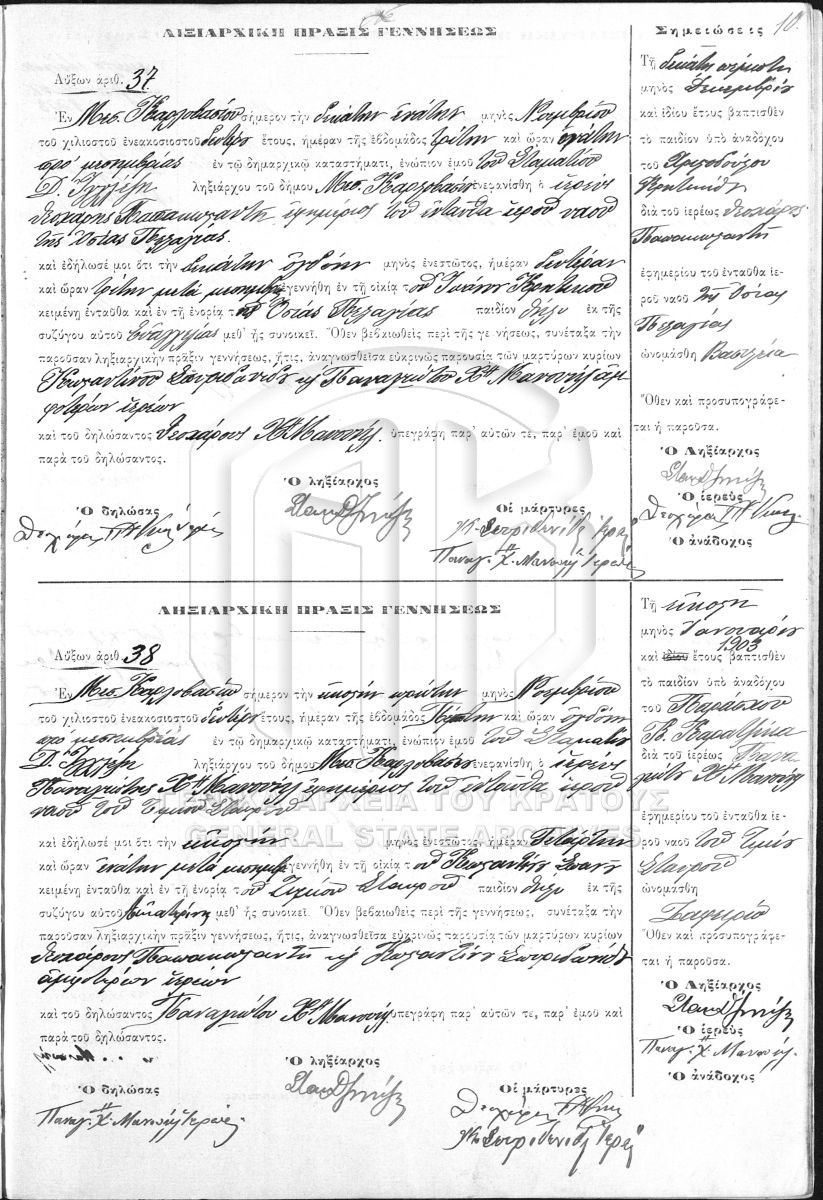 10.
ΛΗΞΙΑΡΧΙΚΗ ΠΡΑΞΙΣ ΓΕΝΝΗΣΕΩΣ
Αὔξων ἀριθ. 37
Ἐν Μεσ. Καρλοβασίου σήμερον τὴν δεκάτην ἐνάτην μηνὸς Νοεμβρίου
τοῦ χιλιοστοῦ ἐνεακοσιοστοῦ δευτέρου ἔτους, ἡμέραν τῆς ἑβδομάδος τρίτην καὶ ὥραν ἐνάτην
πρὸ μεσημβρίας ἐν τῷ δημαρχικῷ καταστήματι, ἐνώπιον ἐμοῦ τοῦ Σταματίου
Δ. ληξιάρχου τοῦ δήμου Μεσ. Καρλοβασίου ἐνεφανίσθη ὁ ἱερεὺς
Θεοχάρης Παπακωσταντῆ ἐφημέριος τοῦ ἐνταῦθα ἱεροῦ ναοῦ
τῆς Ὁσίας Πελαγίας.
καὶ ἐδήλωσέ μοι ὅτι τὴν δεκάτην ὀγδόην μηνὸς ἐνεστῶτος, ἡμέραν δευτέραν
καὶ ὥραν τρίτην μετὰ μεσημβρ. ἐγεννήθη ἐν τῇ οἰκίᾳ τοῦ Ἰωάννη Κρητικοῦ
κειμένῃ ἐνταῦθα καὶ ἐν τῇ ἐνορίᾳ τῆς Ὁσίας Πελαγίας παιδίον θῆλυ ἐκ τῆς
συζύγου αὐτοῦ Εὐαγγελίας μεθ' ἧς συνοικεῖ. Ὅθεν βεβαιωθεὶς περὶ τῆς γεννήσεως, συνέταξα τὴν
παροῦσαν ληξιαρχικὴν πρᾶξιν γεννήσεως, ἥτις, ἀναγνωσθεῖσα εὐκρινῶς παρουσίᾳ τῶν μαρτύρων κυρίων
Κωσταντίνου Σπυριδωνίδου κ Παναγιώτου Χ" Μανουὴλ ἀμ-
φοτέρων ἱερέων
καὶ τοῦ δηλώσαντος Θεοχάρους Χ" Μανουὴλ. ὑπεγράφη παρ' αὐτῶν τε, παρ' ἐμοῦ καὶ
παρὰ τοῦ δηλώσαντος.
Ὁ ληξίαρχος
Ὁ δηλώσας
Οἱ μάρτυρες
Κ. Σπυριδωνίδης Ἱερεύς
Παναγ. Χ" Μανουήλ Ἱερεύς
Σημειώσεις
Τῇ δεκάτῃ πέμπτῃ
μηνὸς Δεκεμβρίου
καὶ ἰδίου ἔτους βαπτισθὲν
τὸ παιδίον ὑπὸ ἀναδόχου
τοῦ Χριστοδούλου
Κρητικίδη
διὰ τοῦ ἱερέως Θεοχάρους
Παπακωσταντῆ
ἐφημερίου τοῦ ἐνταῦθα ἱε-
ροῦ ναοῦ τῆς Ὁσίας
Πελαγίας
ὠνομάσθη Βασιλεία
Ὅθεν καὶ προσυπογράφε-
ται ἡ παροῦσα.
Ὁ Ληξίαρχος
Ὁ ἱερεὺς
Ὁ ἀνάδοχος
ΛΗΞΙΑΡΧΙΚΗ ΠΡΑΞΙΣ ΓΕΝΝΗΣΕΩΣ
Αὔξων ἀριθ. 38
Ἐν Μεσ. Καρλοβασίου σήμερον τὴν εἰκοστὴν πρώτην μηνὸς Νοεμβρίου
τοῦ χιλιοστοῦ ἐνεακοσιοστοῦ δευτέρου ἔτους, ἡμέραν τῆς ἑβδομάδος Πέμπτην καὶ ὥραν ὀγδόην
πρὸ μεσημβρίας ἐν τῷ δημαρχικῷ καταστήματι, ἐνώπιον ἐμοῦ τοῦ Σταματίου
Δ. ληξιάρχου τοῦ δήμου Μεσ. Καρλοβασίου ἐνεφανίσθη ὁ ἱερεὺς
Παναγιώτης Χ" Μανουὴλ ἐφημέριος τοῦ ἐνταῦθα ἱεροῦ
ναοῦ τοῦ Τιμίου Σταυροῦ
καὶ ἐδήλωσέ μοι ὅτι τὴν εἰκοστὴν μηνὸς ἐνεστῶτος, ἡμέραν Τετάρτην
καὶ ὥραν ἐνάτην μετὰ μεσημβρ. ἐγεννήθη ἐν τῇ οἰκίᾳ τοῦ Κωσταντίνου
κειμένῃ ἐνταῦθα καὶ ἐν τῇ ἐνορίᾳ τοῦ Τιμίου Σταυροῦ παιδίον θῆλυ ἐκ τῆς
συζύγου αὐτοῦ Αἰκατερίνης μεθ' ἧς συνοικεῖ. Ὅθεν βεβαιωθεὶς περὶ τῆς γεννήσεως, συνέταξα τὴν
παροῦσαν ληξιαρχικὴν πρᾶξιν γεννήσεως, ἥτις, ἀναγνωσθεῖσα εὐκρινῶς παρουσίᾳ τῶν μαρτύρων κυρίων
Θεοχάρους Παπακωσταντῆ κ Κωσταντίνου Σπυριδωνίδου
ἀμφοτέρων ἱερέων
καὶ τοῦ δηλώσαντος Παναγιώτου Χ" Μανουὴλ ὑπεγράφη παρ' αὐτῶν τε, παρ' ἐμοῦ καὶ
παρὰ τοῦ δηλώσαντος.
Ὁ ληξίαρχος
Ὁ δηλώσας
Παναγ. Χ" Μανουήλ Ἱερεύς
Οἱ μάρτυρες
Κ. Σπυριδωνίδης Ἱερεύς
Τῇ εἰκοστῇ
μηνὸς Ἰανουαρίου
καὶ ἰδίου ἔτους 1903 βαπτισθὲν
τὸ παιδίον ὑπὸ ἀναδόχου
τοῦ Παράσχου
διὰ τοῦ ἱερέως Πανα
γιώτου Χ" Μανουὴλ
ἐφημερίου τοῦ ἐνταῦθα ἱε-
ροῦ ναοῦ τοῦ Τιμίου
Σταυροῦ
ὠνομάσθη
Σαφειρὼ
Ὅθεν καὶ προσυπογράφε-
ται ἡ παροῦσα.
Ὁ Ληξίαρχος
Ὁ ἱερεὺς
Παναγ. Χ" Μανουήλ.
Ὁ ἀνάδοχος
ΓΕΝΙΚΑ ΑΡΧΕΙΑ ΤΟΥ ΚΡΑΤΟΥΣ
GENERAL STATE ARCHIVES